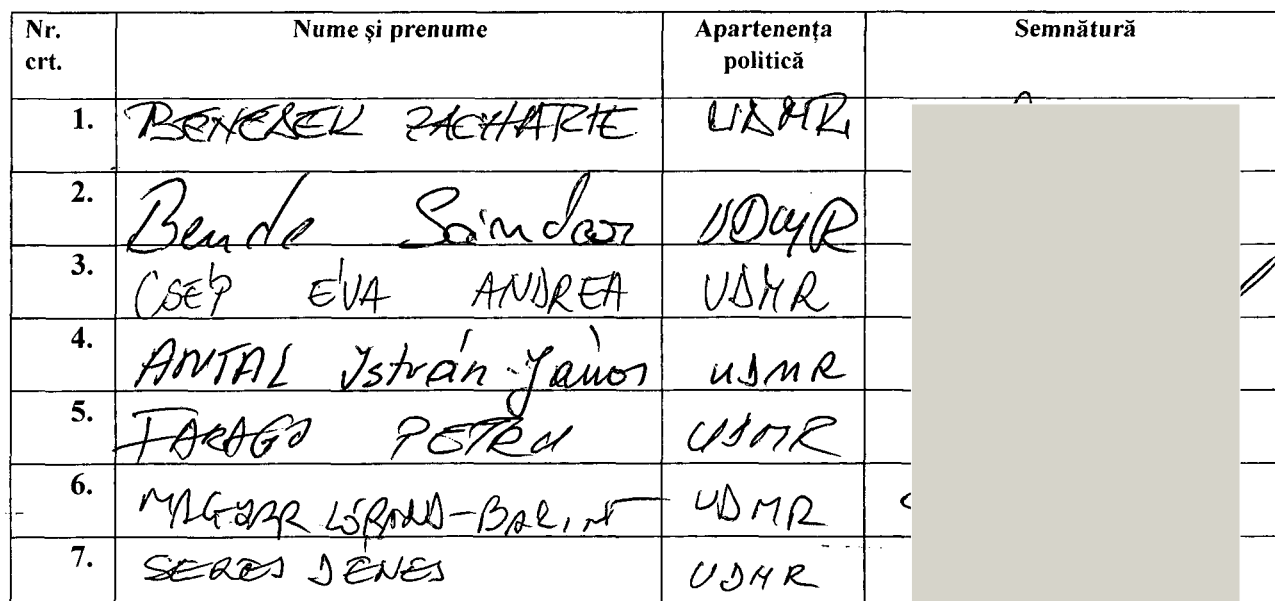 Nr. crt. Nume și prenume Apartenența politică Semnătură
1. BENEDEK ZACHARIE UDMR
2. Bende Sándor UDMR
3. CSEP ÉVA ANDREA UDMR
4. ANTAL István-János UDMR
5. FARAGO PETRU UDMR
6. MAGYAR LÓRÁND-BÁLINT UDMR
7. SERES DÉNES UDMR